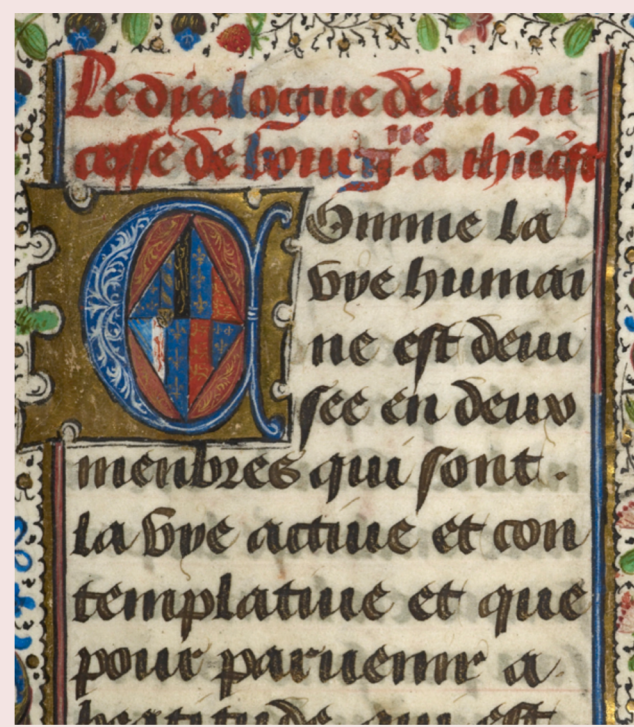 Le dyalogue de la du
cesse de bourgne a ihũcrist
Comme la
vye humai
ne est deui
see en deux
menbres qui sont.
la vye actiue et con
templatiue et que
pour paruenir a
beatitude qui est